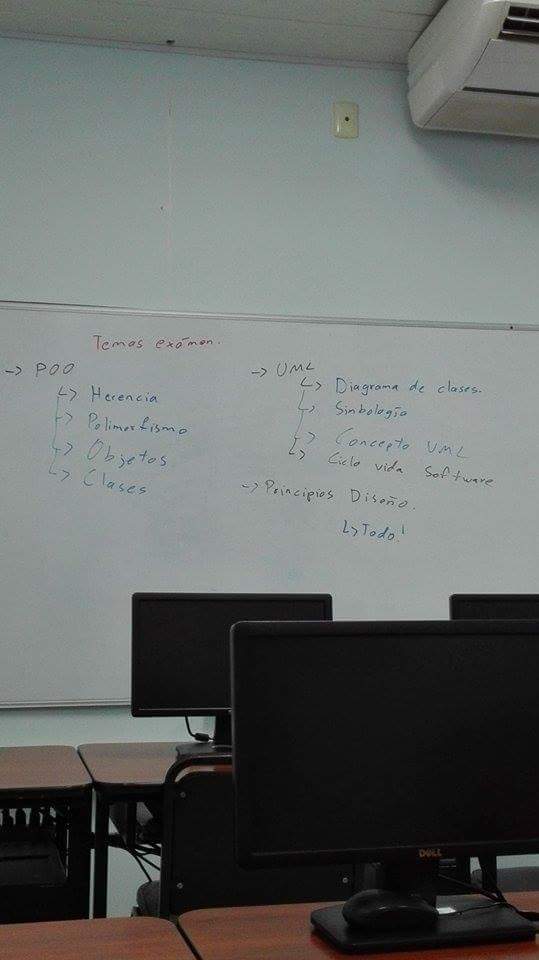 Temas exámen.
-> POO
↳ Herencia
↳ Polimorfismo
↳ Objetos
↳ Clases
-> UML
↳ Diagrama de clases.
↳ Sinbología
↳ Concepto UML
↳ Ciclo vida Software
-> Principios Diseño.
↳ Todo!
DELL